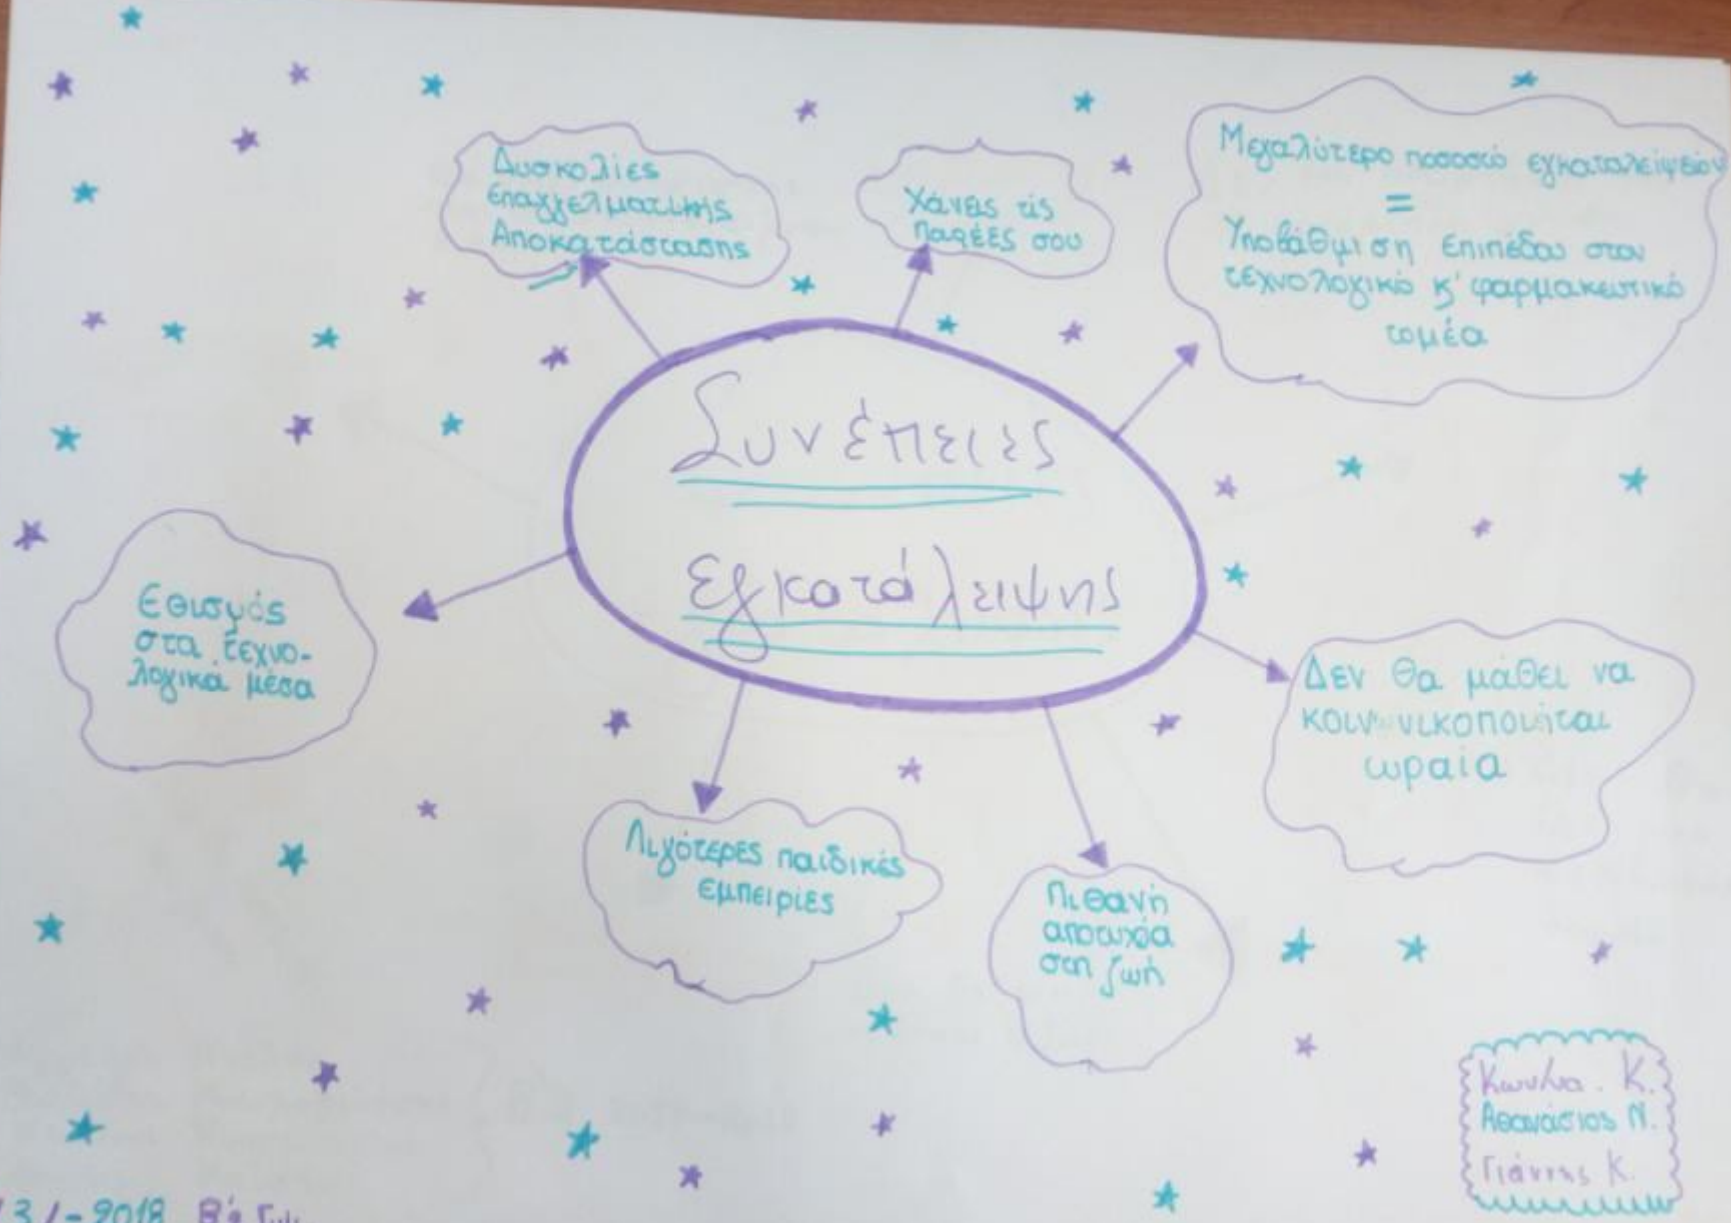 Δυσκολίες
επαγγελματικής
Αποκατάστασης
Χάνεις τις
παρέες σου
Μεγαλύτερο ποσοστό εγκαταλείψεων
=
Υποβάθμιση επιπέδου στον
τεχνολογικό κ' φαρμακευτικό
τομέα
Συνέπειες
εγκατάλειψης
Εθισμός
στα τεχνο-
λογικά μέσα
Δεν θα μάθει να
κοινωνικοποιήται
ωραία
Λιγότερες παιδικές
εμπειρίες
Πιθανή
αποτυχία
στη ζωή
Κων/να. Κ.
Αθανάσιος Ν.
Γιάννης Κ.
2018